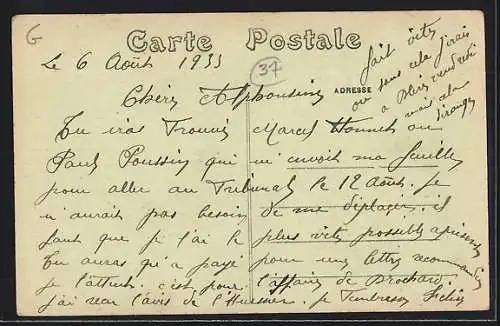 G
Carte Postale
37
ADRESSE
fait vite
ou sans cela j'irais
a Bléré vendredi
mais alors
Le 6 Août 1933
Chère Alphonsine
Tu iras Trouver Marcel Honnet ou
Paul Poussin qui m'envoit ma feuille
pour aller au Tribunal le 12 Août. Je
n'aurait pas besoin de me déplacer. il
faut que je l'ai le plus vite possible
Tu auras qu'a payé pour une lettre recommandée
je l'attend. c'est pour l'affaire de Brochard
j'ai reçu l'avis de l'Huissier. je t'embrasse